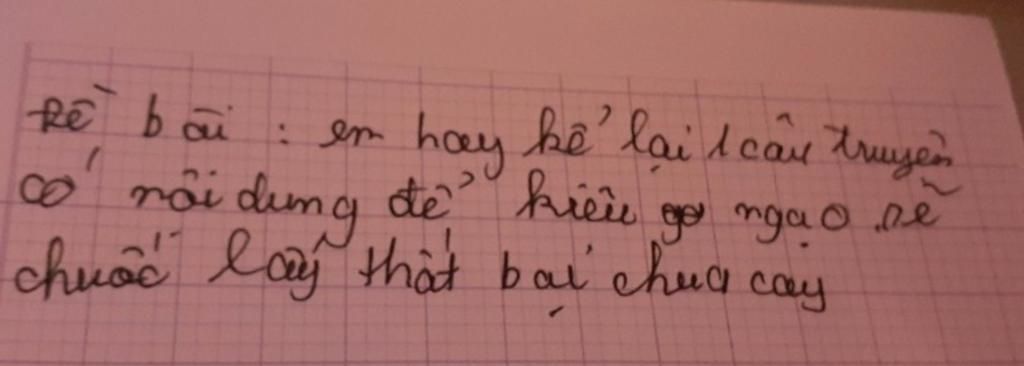 Đề bài : em hay kể lại 1 câu truyện
có nội dung để kiêu ngạo sẽ
chuốc lấy thất bại chua cay